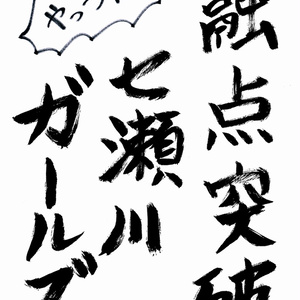 融点突破
七瀬川
ガールズ